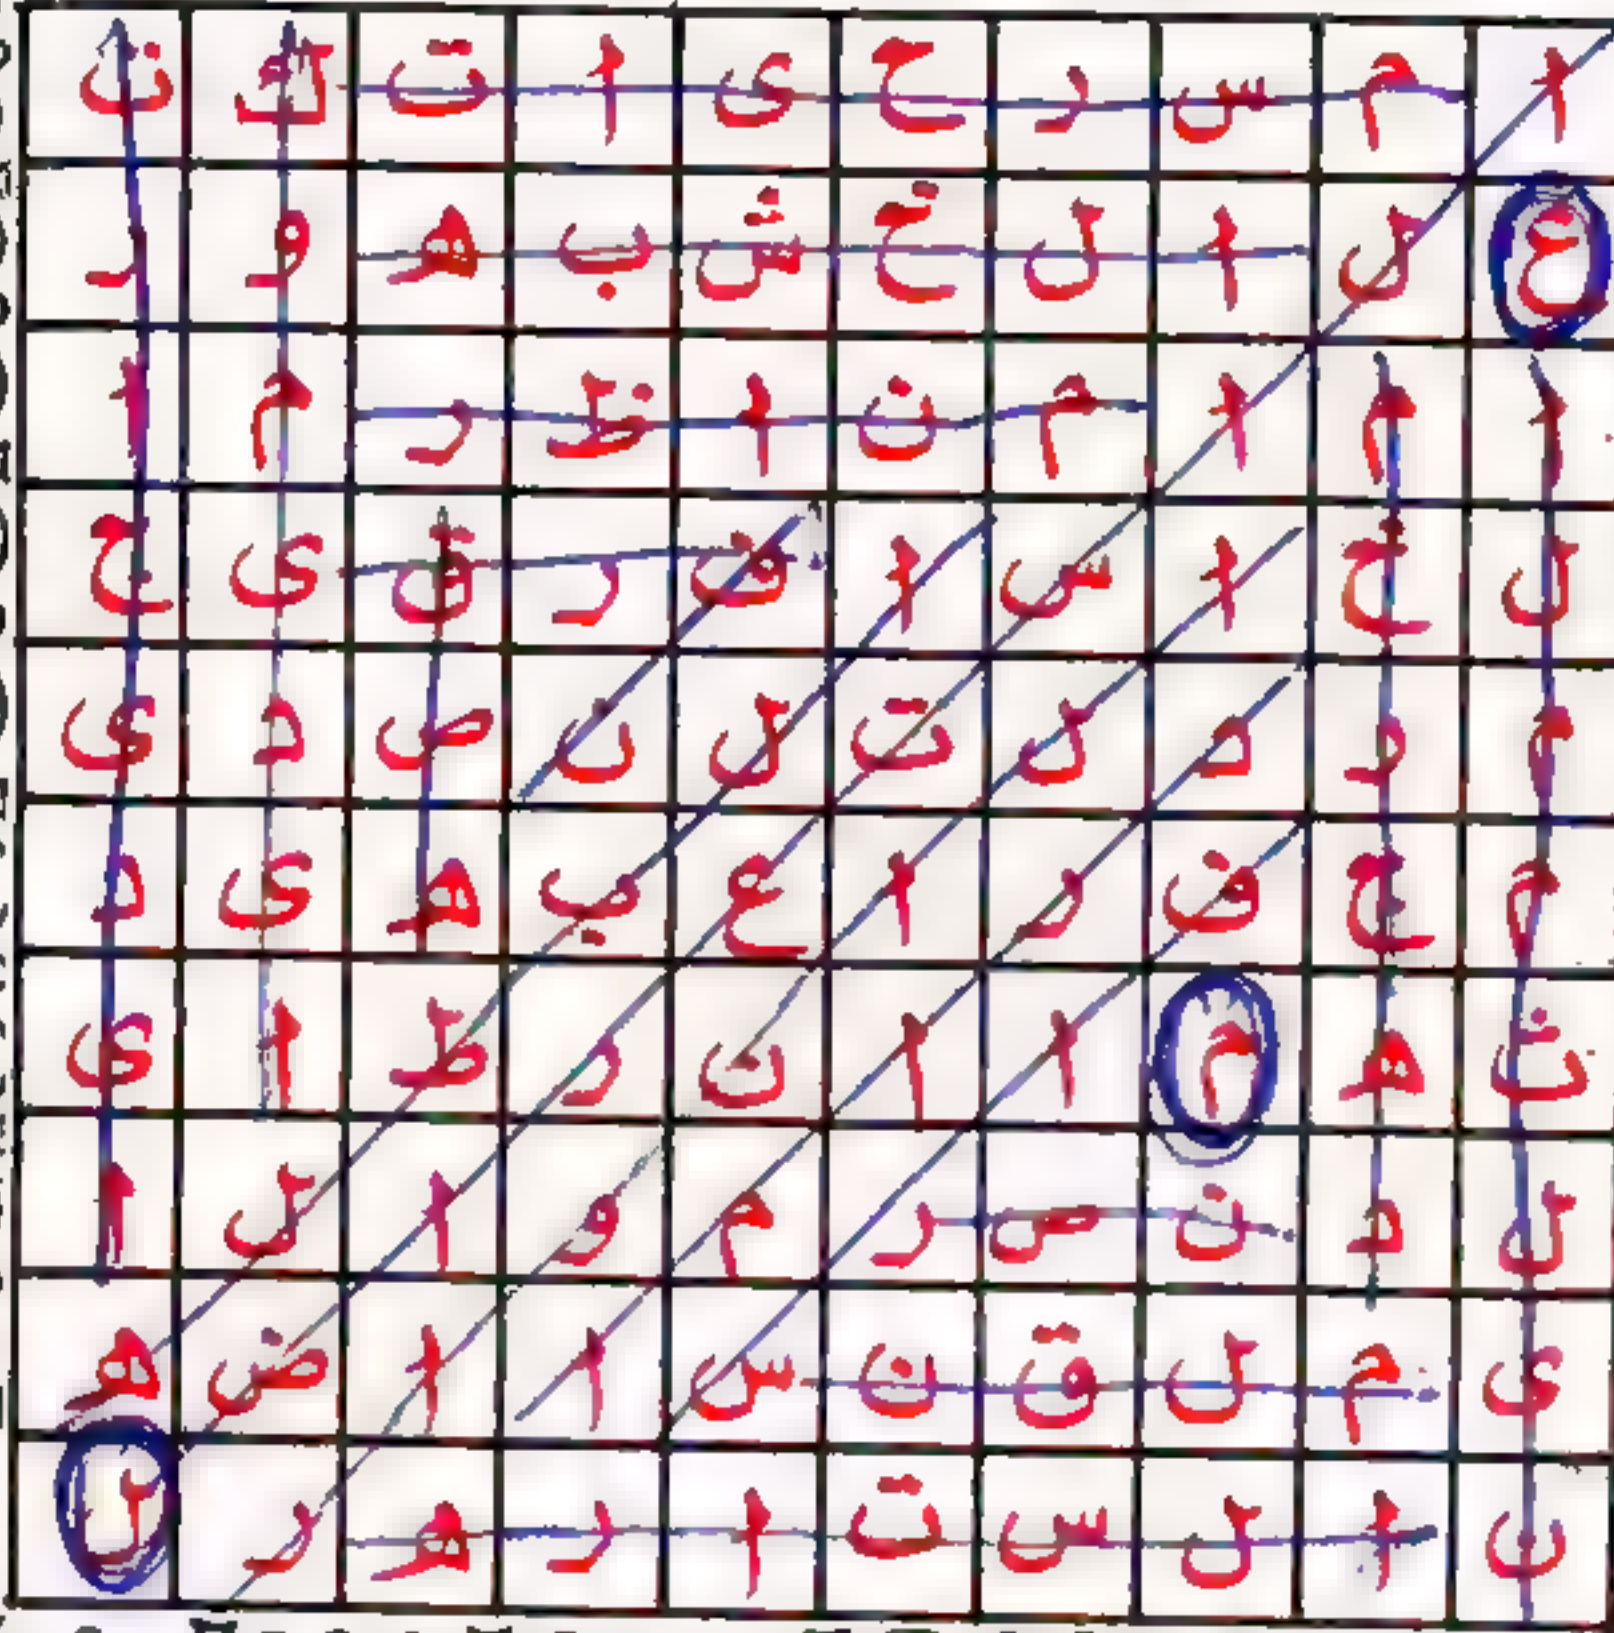 ا م س ر ح ى ا ت ك ن
ع ل ا ل خ ش ب ه و ر
ا م ا م ن ا ظ ر م ا
ل ح س ا ف ر ق ى ج
م ر د ل ت ل ن ص د ى
م ج ف ر ا ع ب ه ى د
ث ه م ا ا ن ر ط ا ى
ل د ن ص ر م و ا ل ا
ى م ل ق ن س ا ا ض ه
ن ا ل س ت ا ر ه ر ل